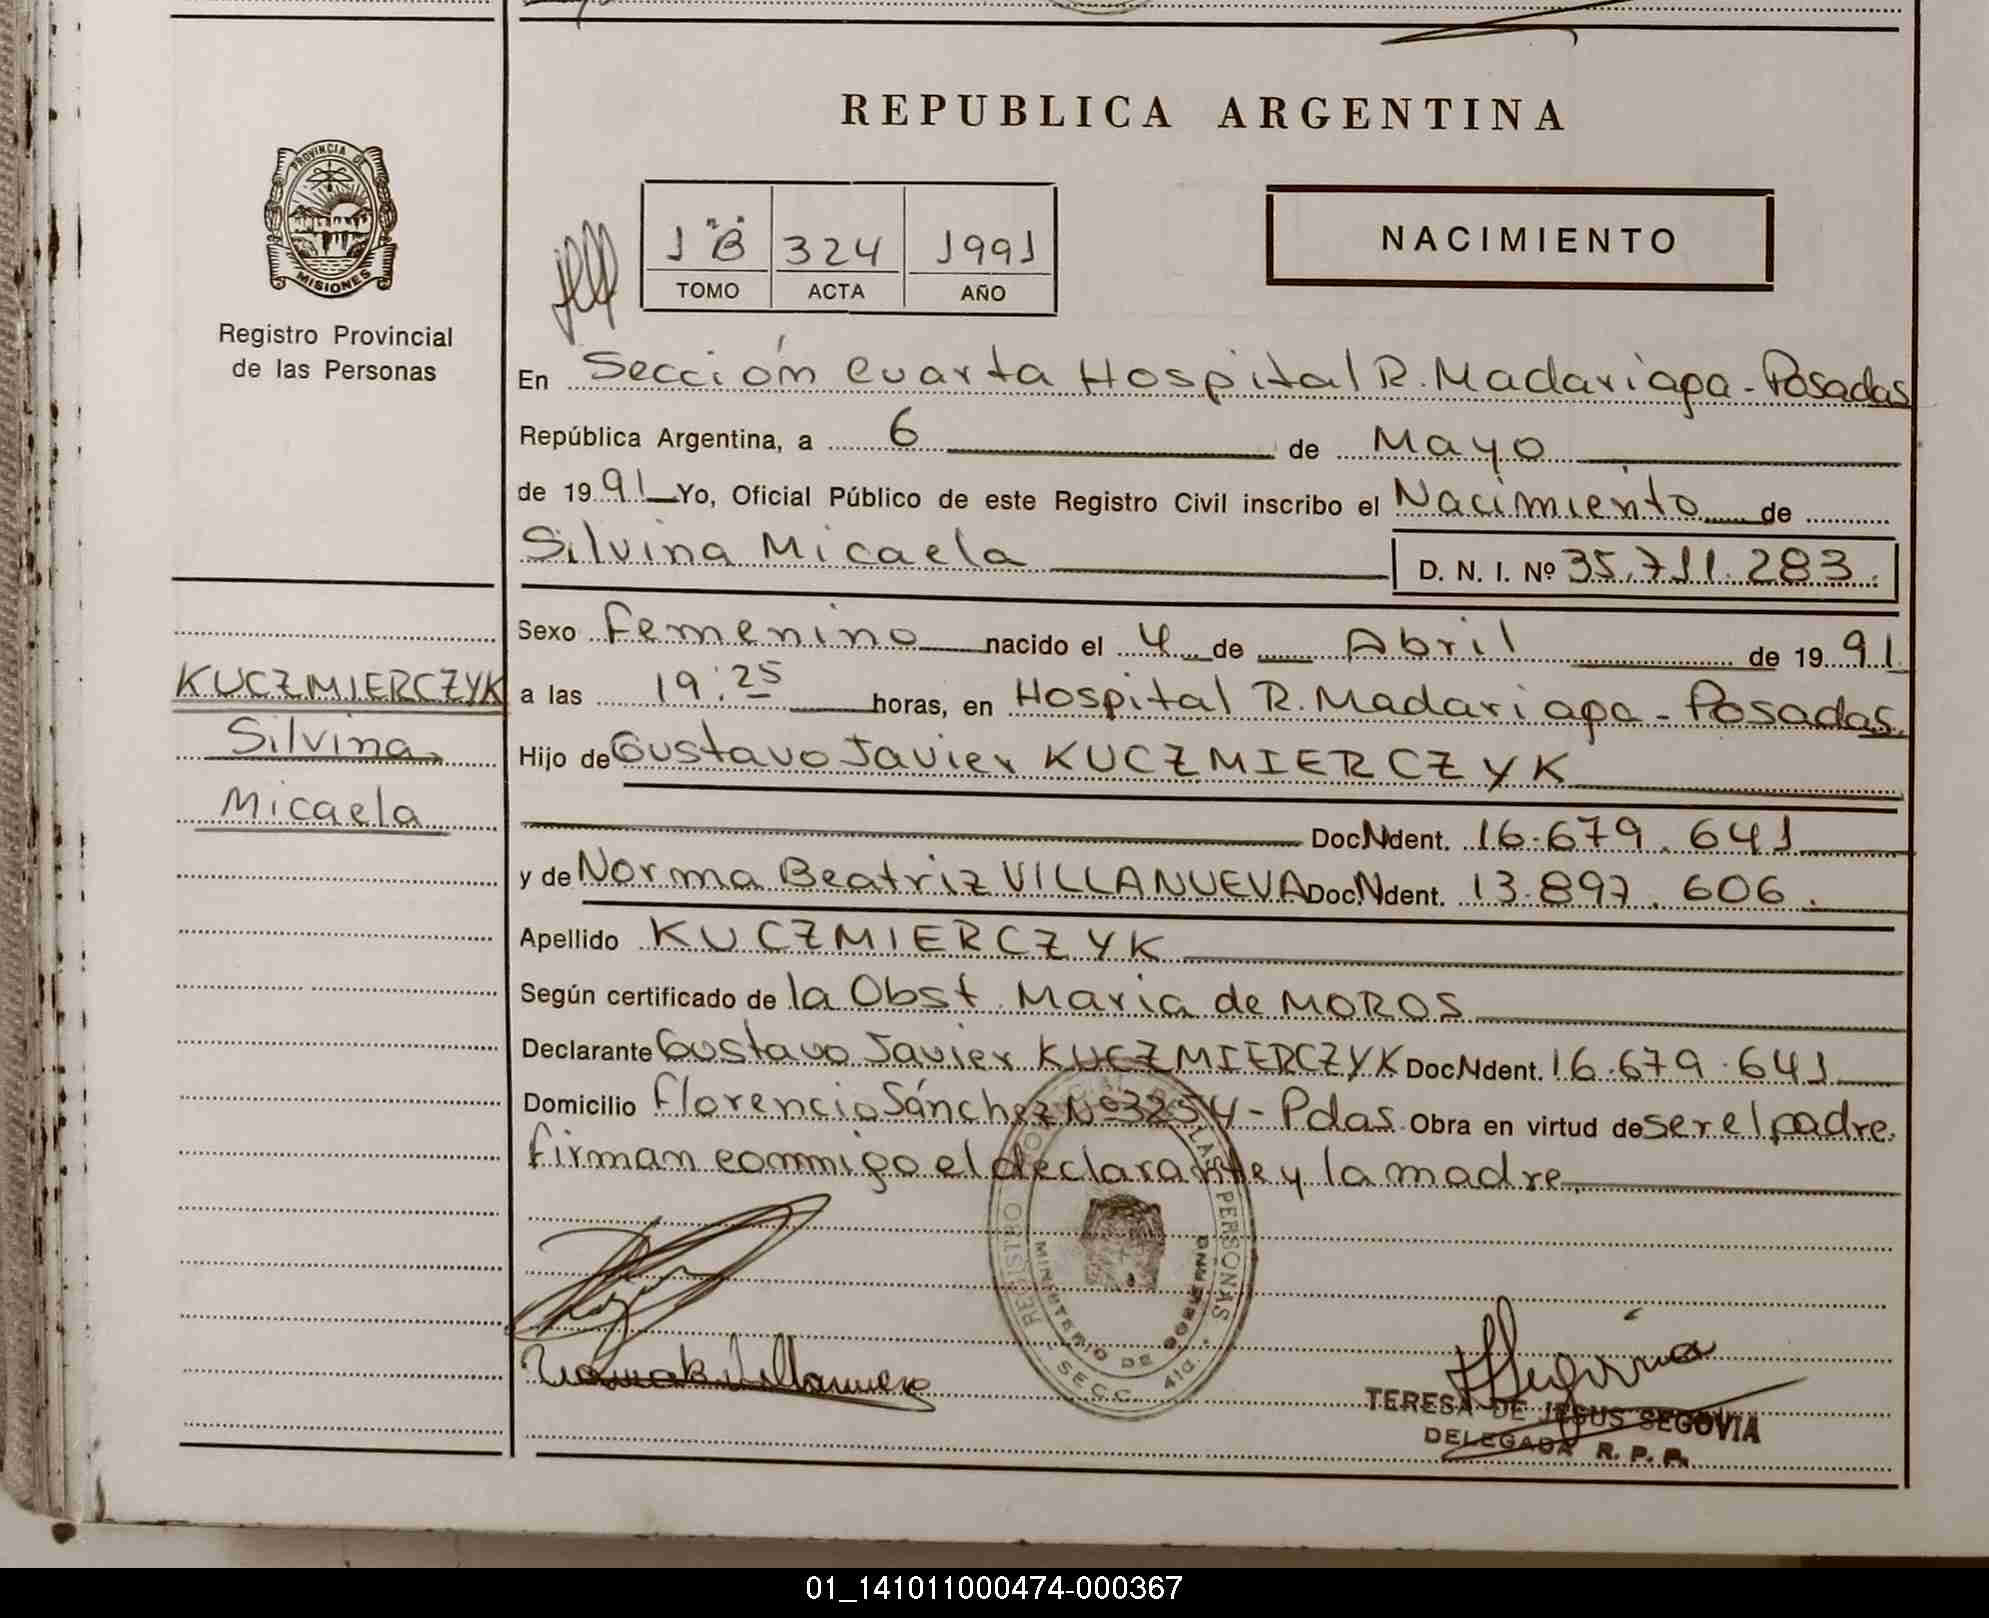 REPUBLICA ARGENTINA
PROVINCIA DE
MISIONES
Registro Provincial
de las Personas
1 "B" 324 1991
TOMO ACTA AÑO
NACIMIENTO
En Sección Cuarta Hospital R. Madariaga - Posadas
República Argentina, a 6 de Mayo
de 1991 Yo, Oficial Público de este Registro Civil inscribo el Nacimiento de
Silvina Micaela D. N. I. Nº 35.711.283.
Sexo Femenino nacido el 4 de Abril de 1991
a las 19:25 horas, en Hospital R. Madariaga - Posadas.
Hijo de Gustavo Javier KUCZMIERCZYK
Doc. Ident. 16.679.641
y de Norma Beatriz VILLANUEVA Doc. Ident. 13.897.606.
Apellido KUCZMIERCZYK
Según certificado de la Obst. Maria de MOROS
Declarante Gustavo Javier KUCZMIERCZYK Doc. Ident. 16.679.641
Domicilio Florencio Sánchez Nº 3254 - Pdas. Obra en virtud de ser el padre.
firman conmigo el declarante y la madre.
KUCZMIERCZYK
Silvina
Micaela
REGISTRO PROVINCIAL DE LAS PERSONAS
MINISTERIO DE GOBIERNO
SECC. 4ta.
Norma B. Villanueva
TSegovia
TERESA DE JESUS SEGOVIA
DELEGADA R. P. P.
01_141011000474-000367